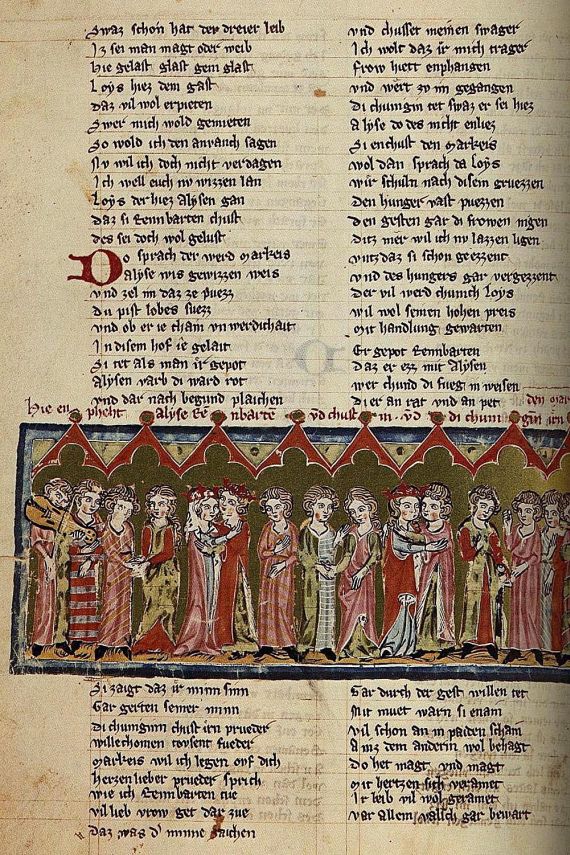 Swaz schon hat der dreier leib
Iz sei man magt oder weib
Hie gelast glast gem glast
Loys hiez dem gast
Daz vil wol erpieten
Swer mich wold gemieten
So wold ich den anvanch sagen
Nv wil ich doch nicht verdagen
Ich well euch nv wizzen lan
Loys der hiez alysen gan
daz si Rennbarten chust
des sei doch wol gelust
Do sprach der werd markeis
alyse wis gewizzen weis
vnd zel im daz ze puezz
du pist lobes suezz
vnd ob er ie cham vn werdichait
In disem hof ie gelait
Si tet als man ir gepot
alysen varb di ward rot
vnd dar nach begund plaichen
vnd chusset meinen swager
Ich wolt daz ir mich trager
frow hett enphangen
vnd wert zv im gegangen
Di chungin tet swaz er sei hiez
alyse do des nicht enliez
Si enchust den markeis
wol dan sprach da loys
wir schuln nach disem gruezzen
den hunger vast puezzen
den gesten gar di frowen ingen
ditz mer wil ich nv lazzen ligen
vntz daz si schon geezzent
vnd des hungers gar vergezzent
der vil werd chunich loys
wil wol seinen hohen preis
mit handlung gewarten
Er gepot Rennbarten
daz er ezz mit alysen
wer chund di fueg in weisen
di er an rat vnd an pet
Hie en pheht alyse Re nbarte vnd chust in vnd di chunigin irn
den mar
Si zaigt daz ir minn sinn
Gar gerten seiner minn
di chuniginn chust irn prueder
willechomen tovsent fueder
markeis wil ich legen ovf dich
herzen lieber prueder sprich
wie ich Rennbarten tue
vil lieb vrow get dar zue
daz was d' minne zaichen
Gar durch der gest willen tet
Mit muet warn si enain
vil schon an in paiden schain
Ainz dem anderin wol behagt
do het magt vnd magt
mit hertzen sich veramet
Ir leib vil wol geramet
var allem valsch gar bewart